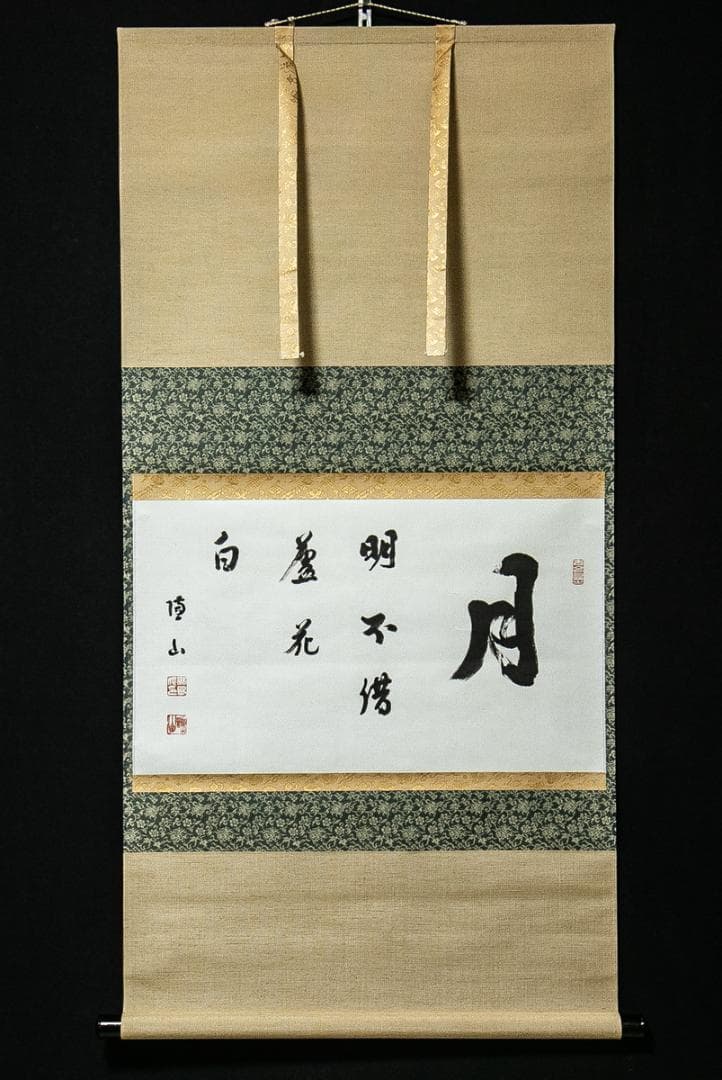 月
明不借
蘆花
白
山